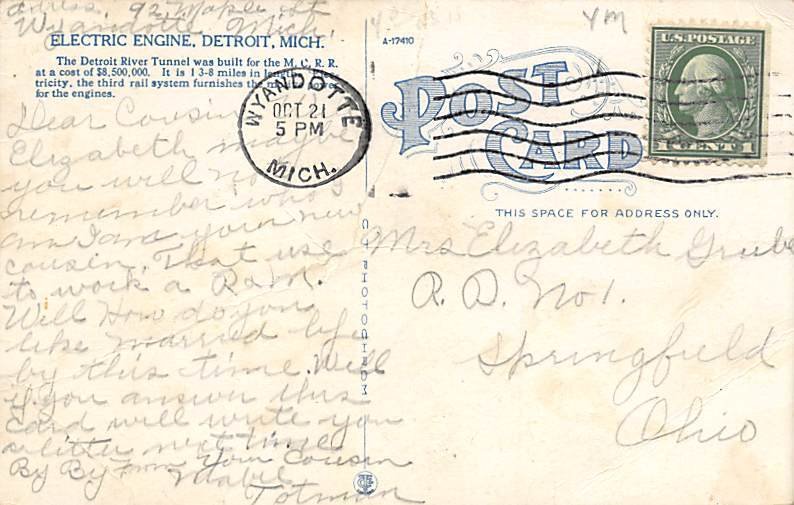 adress, 92 Maple st
Wyandotte Mich.
ELECTRIC ENGINE, DETROIT, MICH.
The Detroit River Tunnel was built for the M. C. R. R.
at a cost of $8,500,000. It is 1 3-8 miles in length. Elec-
tricity, the third rail system furnishes the power
for the engines.
Dear Cousin
Elizabeth maybe
you will not
remember who
am I am your new
cousin. That use
to work a R & M.
Well How do you
like married life
by this time. Well
if you answer this
card will write you
a litter next time
By By From Your Cousin
Mabel
Totman
WYANDOTTE
OCT 21
5 PM
MICH.
A-17410
YM
POST
CARD
U.S. POSTAGE
1 CENT 1
THIS SPACE FOR ADDRESS ONLY.
Mrs Elizabeth Grube
R. D. No 1.
Springfield
Ohio
C. T. PHOTOCHROM